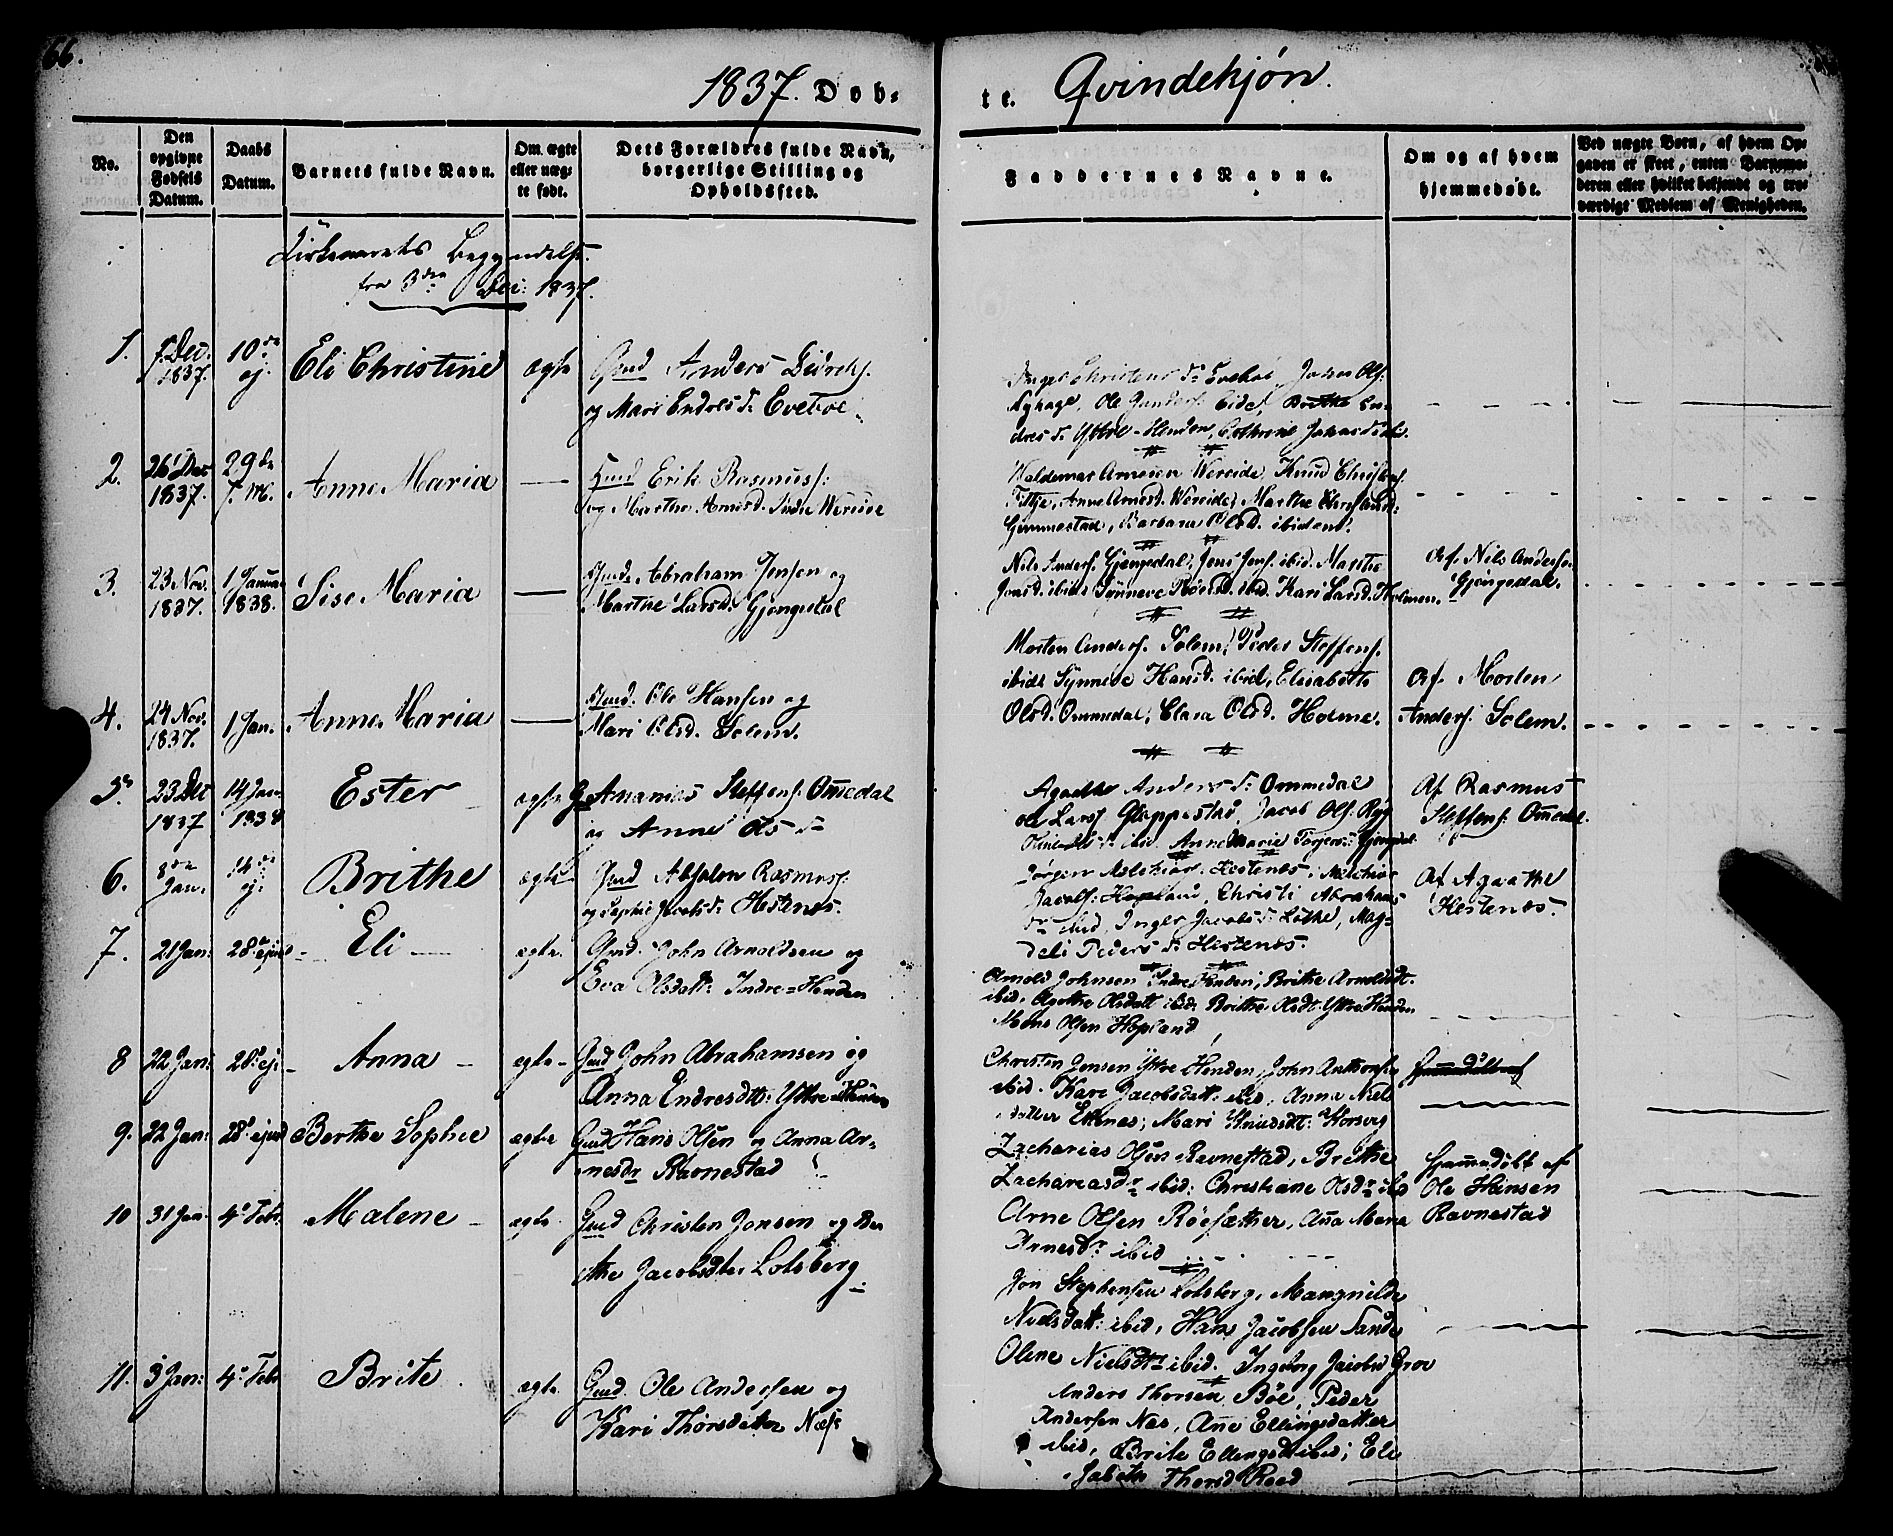 66.
1837. Døb=
te. Qvindekjøn.
No.
Den
opgivne
Fødsels
Datum.
Daabs
Datum.
Barnets fulde Navn.
Om ægte
eller uæg-
te født.
Dets Forældres fulde Navn,
borgerlige Stilling og
Opholdssted.
Faddernes Navne.
Om og af hvem
hjemmedøbt.
Ved uægte Børn, af hvem Op-
gaven er skeet, enten Barnemo-
deren eller hvilket bekjendt og tro-
værdigt Medlem af Menigheden.
Kirkeaarets Begyndelse
fra 3den Dec: 1837.
1.
Dec.
1837.
10de
ej.
Eli Christine
ægte
Gmd Anders Didrichs.
og Mari Endresd: Evebøe
Ole Gunders. Eide, Brithe En-
dresd: Yttre-Henden, Cathrine
2.
26 Dec
1837.
29de
Anne Maria
Gmd Erik Rasmuss:
og Marthe Arnesd. Indre Wereide
Waldemar Arnesen Wereide, Knud Christens.
Anne Arnesd. Wereide, Marthe
Gimmestad, Barbara Olsd. ibidem.
3.
23 Nov.
1837.
1 Januar
1838.
Sise Maria
Gmd. Abraham Jensen og
Marthe Larsd. Gjengedal
Nils Anders. Gjengedal, Jens Jens. ibid. Marthe
Jonsd. ibid. Synneve ibid. Kari Larsd. Holmen.
Af Nils Anders.
Gjengedal.
4.
24 Nov.
1837.
1 Jan.
Anne Maria
Gmd. Ole Hansen og
Mari Olsd. Solem.
Morten Anders. Solem, Peder Steffens.
ibid. Synneve Hansd. ibid, Elisabeth
Olsd. Ommedal, Clara Olsd. Holme.
Af Morten
Anders. Solem.
5.
23 Dec
1837
14 Jan
1838
Ester
ægte
G. Ananias Steffens. Omedal
og Anne Ols d:
Agathe Anders d: Ommedal
Ole Lars. Gloppestad, Jacob Ols. Ryg
ibid. Anne Marie Torgers: Gjengedal
Af Rasmus
Steffens. Omedal.
6.
8de
Jan.
14de
ej.
Brithe
ægte
Gmd Absalon Rasmus:
og Sophie Jacobsd: Hestenes.
Jørgen Melchior. Hestenes, Melchior
Jacobs: Hopland, Christi Abrahams
d: ibid, Inger Jacobsd: Lothe, Mag-
deli Peders d: Hestenes.
Af Agathe
Hestenes.
7.
21 Jan:
28de ejusd
Eli
ægte.
Gmd. John Arnoldsen og
Eva Olsdatt: Indre=Henden
Arnold Johnsen Indre Henden, Brithe Arnoldsdt.
ibid, Agathe Olsdatt ibid: Brithe Olsdt: Yttre Henden
Mons Olsen Hopland
8
22 Jan:
28de ej:
Anna
ægte
Gmd John Abrahamsen og
Anna Endresdtt: Yttre Henden
Christen Jensen Yttre Henden, John Anthons.
ibid. Kari Jacobsdatt. ibid, Anna Niels
datter Ettenes; Mari Knudsdt: Horsvig
9.
22 Jan:
28de ejusd
Berthe Sophie
ægte
Gmd Hans Olsen og Anna Ar-
nesdr Ravnestad
Zacharias Olsen Ravnestad, Brithe
Zachariasdr ibid: Christiane Olsdr ibd
Arne Olsen Røesæther, Ana Maria
Arnesdr ibid
Hjemmedøbt af
Ole Hansen
Ravnestad
10
31 Jan.
4de Febr.
Malene
ægte
Gmd Christen Jonsen og Ber
the Jacobsdtr Lotsberg
Jon Stephensen Lotsberg, Mangnilde
Nielsdatt: ibid, Hans Jacobsen Sande
Olene Nielsdtr ibid. Ingeborg Jacobsd Groe
11.
3 Jan:
4de Febr
Brite
ægte
Gmd. Ole Andersen og
Kari Thorsdatter Næss
Anders Thorsen Bøe, Peder
Andersen Næs, Ane Ellingsdatter
ibid, Brite Ellingsd ibid; Eli
sabeth Thorsd Reed